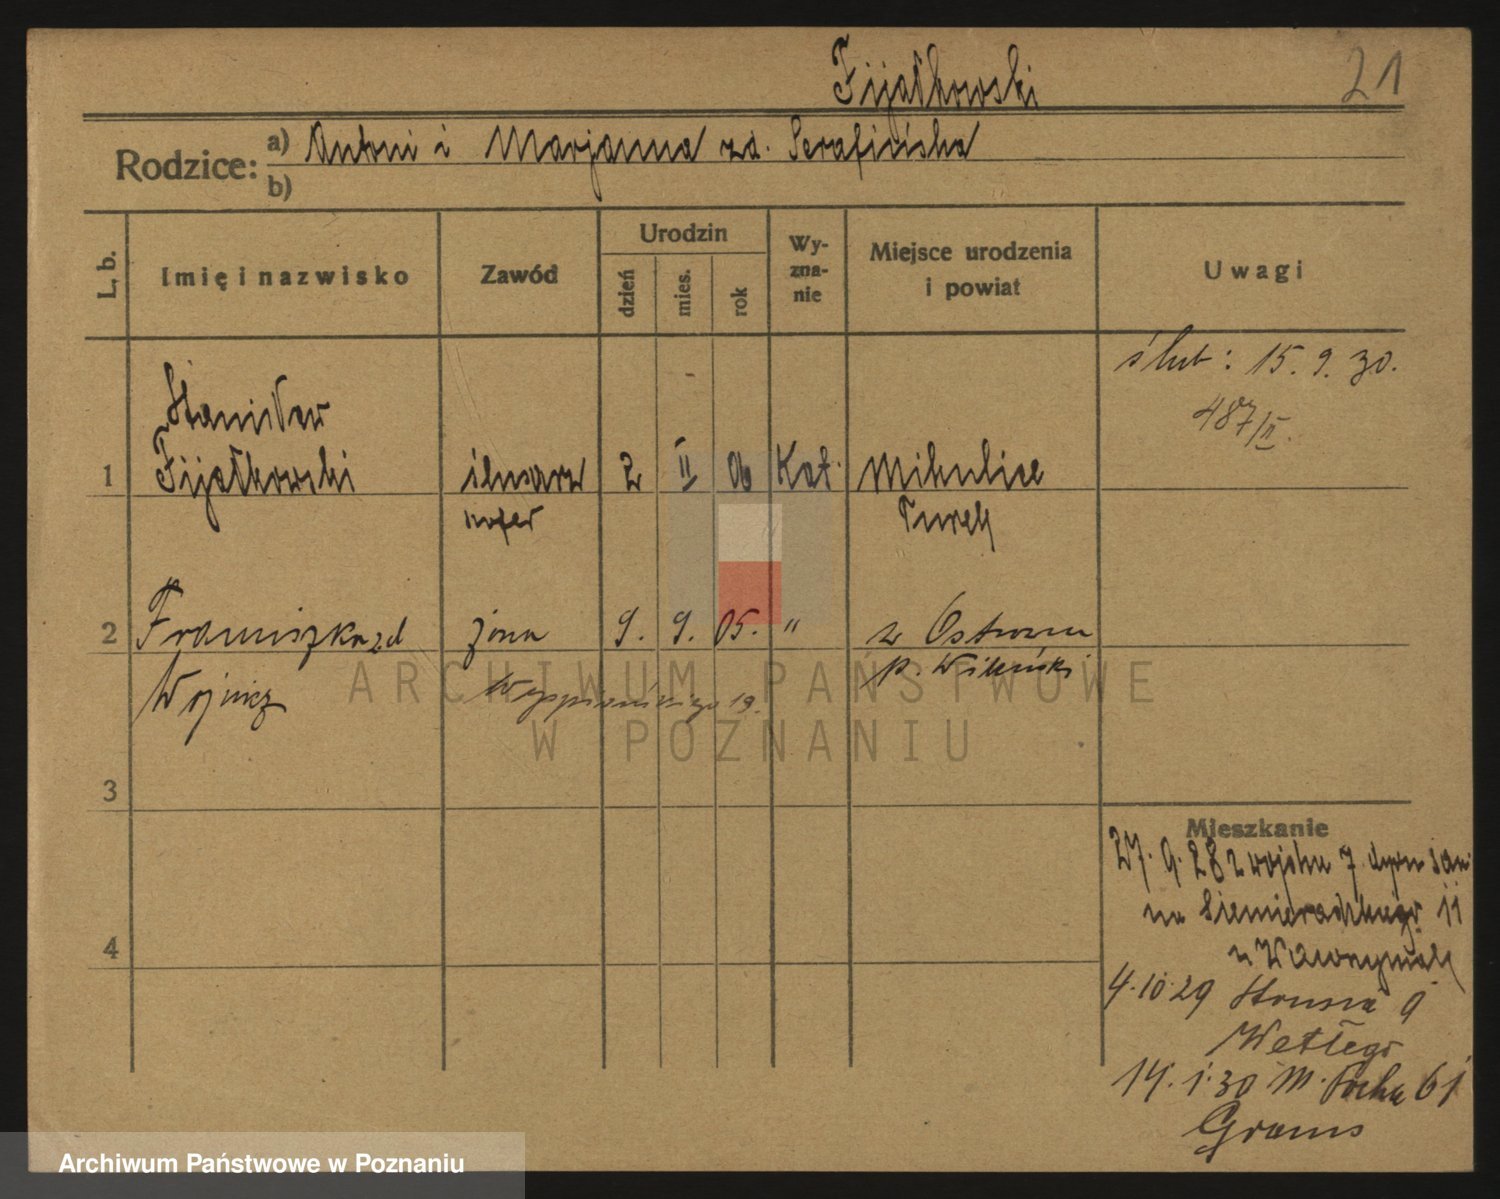 Fijałkowski
21
Rodzice: a) Antoni i Marjanna zd. Serafińska
b)
L. b.
Imię i nazwisko
Zawód
Urodzin
dzień
mies.
rok
Wy-
zna-
nie
Miejsce urodzenia
i powiat
Uwagi
ślub: 15. 9. 30.
487/II.
Stanisław
1 Fijałkowski ślusarz 2 II 06 Kat. Mikulice
szofer Turek
2 Franciszka zd żona 9. 9. 05. " z Ostrowu
Wojnicz Wyspiańskiego 19. p. Wileński
3
4
Mieszkanie
27. 9. 28 z wojska 7 dyon san
na Siemiradzkiego 11
u Wawrzyniak
4.10.29 Strusia 9
14. 1. 30 M. Focha 61
Grams
ARCHIWUM PAŃSTWOWE
W POZNANIU
Archiwum Państwowe w Poznaniu